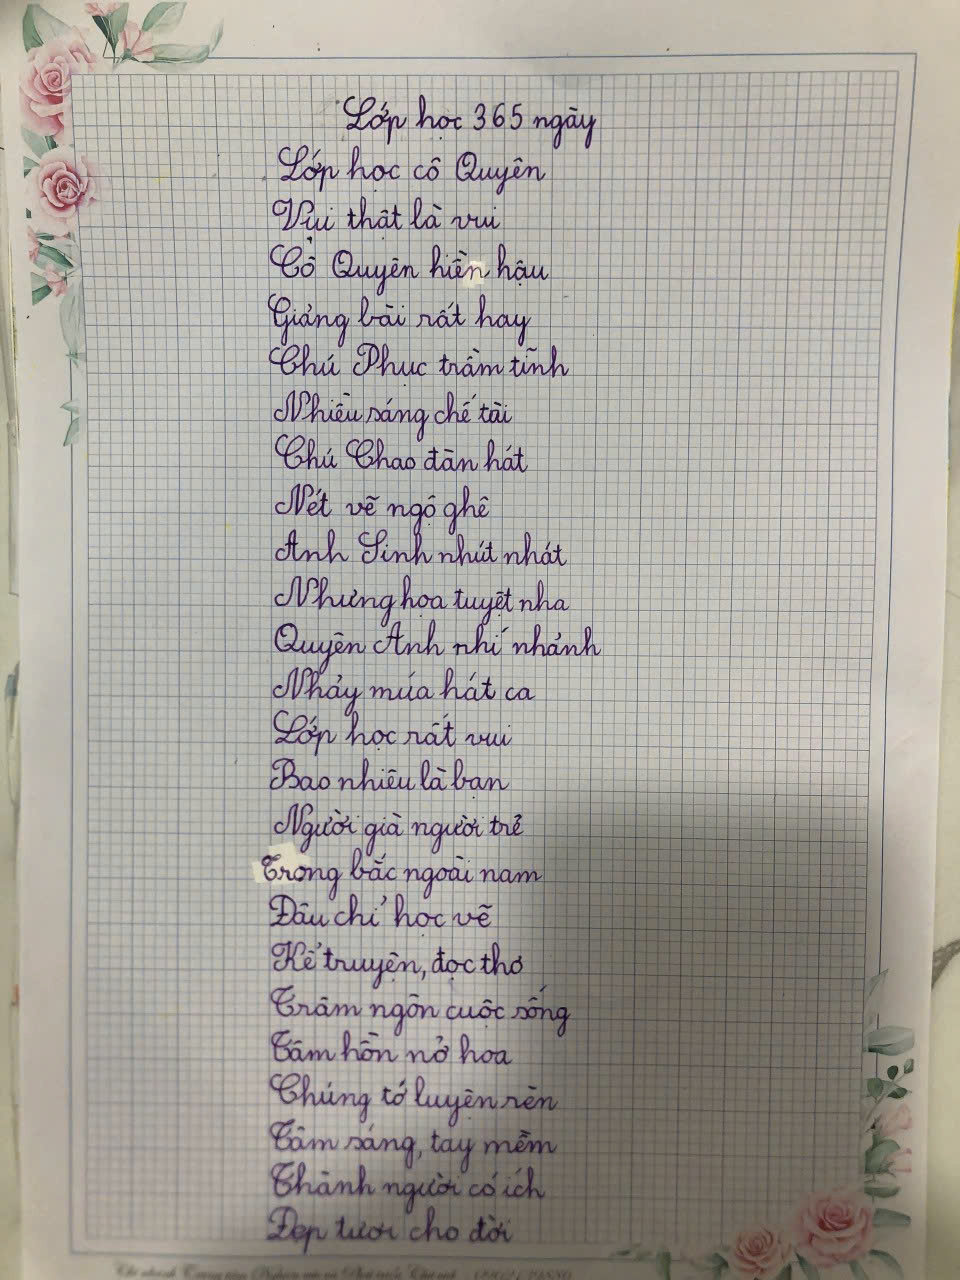 Lớp học 365 ngày
Lớp học cô Quyên
Vui thật là vui
Cô Quyên hiền hậu
Giảng bài rất hay
Chú Phục trầm tĩnh
Nhiều sáng chế tài
Chú Chao đàn hát
Nét vẽ ngộ ghê
Anh Sinh nhút nhát
Nhưng họa tuyệt nha
Quyên Anh nhí nhảnh
Nhảy múa hát ca
Lớp học rất vui
Bao nhiêu là bạn
Người già người trẻ
Trong bắc ngoài nam
Đâu chỉ học vẽ
Kể truyện, đọc thơ
Trâm ngôn cuộc sống
Tâm hồn nở hoa
Chúng tớ luyện rèn
Tâm sáng, tay mềm
Thành người có ích
Đẹp tươi cho đời